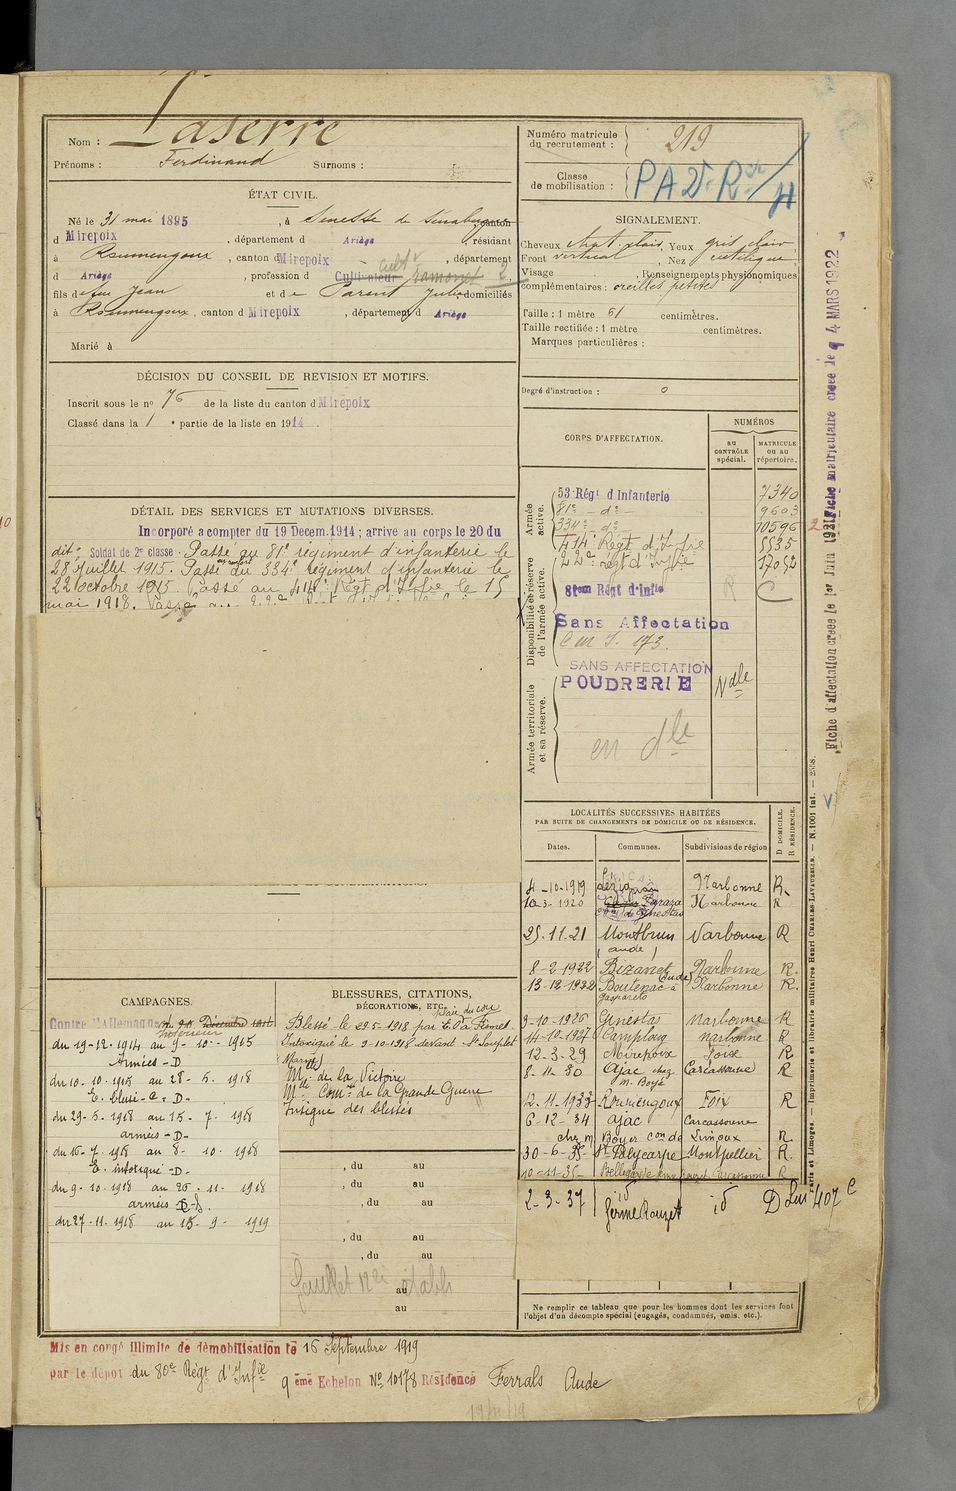 Nom : Laserre
Prénoms : Ferdinand Surnoms :
ÉTAT CIVIL.
Né le 31 mai 1895, à Senesse de Senabugue, canton
d Mirepoix, département d Ariège, résidant
à Roumengoux, canton d Mirepoix, département
d Ariège, profession d Cultivateur ramonet cultr 2
fils de feu Jean et de Parent Julie domiciliés
à Roumengoux, canton d Mirepoix, département d Ariège
Marié à
DÉCISION DU CONSEIL DE REVISION ET MOTIFS.
Inscrit sous le no 76 de la liste du canton d Mirepoix
Classé dans la 1e partie de la liste en 1914.
DÉTAIL DES SERVICES ET MUTATIONS DIVERSES.
Incorporé a compter du 19 Decem. 1914 ; arrive au corps le 20 du
dit. Soldat de 2e classe. Passé au 81e régiment d'infanterie le
28 juillet 1915. Passé en renfort du 334e régiment d'infanterie le
22 octobre 1915. Passé au 414e Régt d'Infrie le 15
mai 1918. Passé au 22e
CAMPAGNES.
Contre l'Allemagne
Intérieur
du 19-12-1914 au 9-10-1915
Armées - D
du 10-10-1915 au 28-5-1918
E. blessé - D -
du 29-5-1918 au 15-7-1918
armées - D -
du 16-7-1918 au 8-10-1918
E. intoxiqué - D -
du 9-10-1918 au 26-11-1918
armées - D -
du 27-11-1918 au 15-9-1919
BLESSURES, CITATIONS,
DÉCORATIONS, ETC.
Blessé le 29 5-1918 par E.O à Fismes. plaie du cou
Intoxiqué le 9-10-1918 devant St Souplet
(Marne)
Mlle de la Victoire
Mlle Comve de la Grande Guerre
Insigne des blessés
, du au
, du au
, du au
, du au
, du au
juillet établi
au
au
Numéro matricule
du recrutement : 219
Classe
de mobilisation : PADR
SIGNALEMENT.
Cheveux chat. clair, Yeux gris clair
Front vertical, Nez rectiligne
Visage , Renseignements physionomiques
complémentaires : oreilles petites
Taille : 1 mètre 61 centimètres.
Taille rectifiée : 1 mètre centimètres.
Marques particulières :
Degré d'instruction : 0
CORPS D'AFFECTATION.
NUMÉROS
au
CONTRÔLE
spécial.
MATRICULE
ou au
répertoire.
Armée
active.
53 Régt d Infanterie 7340
81e - do - 9603
334e - do - 10596
414e Régt d'Infrie 5535
22e régt d'Infrie 17052
Disponibilité et réserve
de l'armée active.
8tem Régt d'Infie R C
Sans Affectation
SANS AFFECTATION
POUDRERIE Ndle
Armée territoriale
et sa réserve.
en dle
LOCALITÉS SUCCESSIVES HABITÉES
PAR SUITE DE CHANGEMENTS DE DOMICILE OU DE RÉSIDENCE.
Dates. Communes. Subdivisions de région
D DOMICILE.
R RÉSIDENCE.
4-10-1919 Lézignan Narbonne R.
10-3-1920 Paraza Narbonne R
Con de Ginestas
25.11.21 Montbrun Narbonne R
(aude)
8-2-1922 Bizanet (Aude) Narbonne R.
13-12-1922 Boutenac à Narbonne R.
Gasparets
9-10-1926 Ginestas Narbonne R
14-10-1927 Camplong Narbonne R
12-3-29 Mirepoix Foix R
8-11-30 Ajac chez Carcassonne R
M. Boyé
12.11.1933 Roumengoux Foix R
6-12-34 ajac Carcassonne
chez M Boyer con de Limoux R.
30-6-35- St Polycarpe Montpellier R.
10-11-35- Bellegarde Carcassonne R
2-3-37 id ferme Rouzet id D Lui 407
Ne remplir ce tableau que pour les hommes dont les services font
l'objet d'un décompte spécial (engagés, condamnés, omis, etc.).
Mis en congé illimité de démobilisation le 16 Septembre 1919
par le dépot du 80e Régt d'Infie 9 ème Echelon No 10178 Résidence Ferrals Aude
Fiche d'affectation creee le 1er Juin 1921
Fiche matriculaire creee le 4 MARS 1922
Paris et Limoges. — Imprimerie et librairie militaires Henri CHARLES-LAVAUZELLE. — N. 1001 int. — 2558.